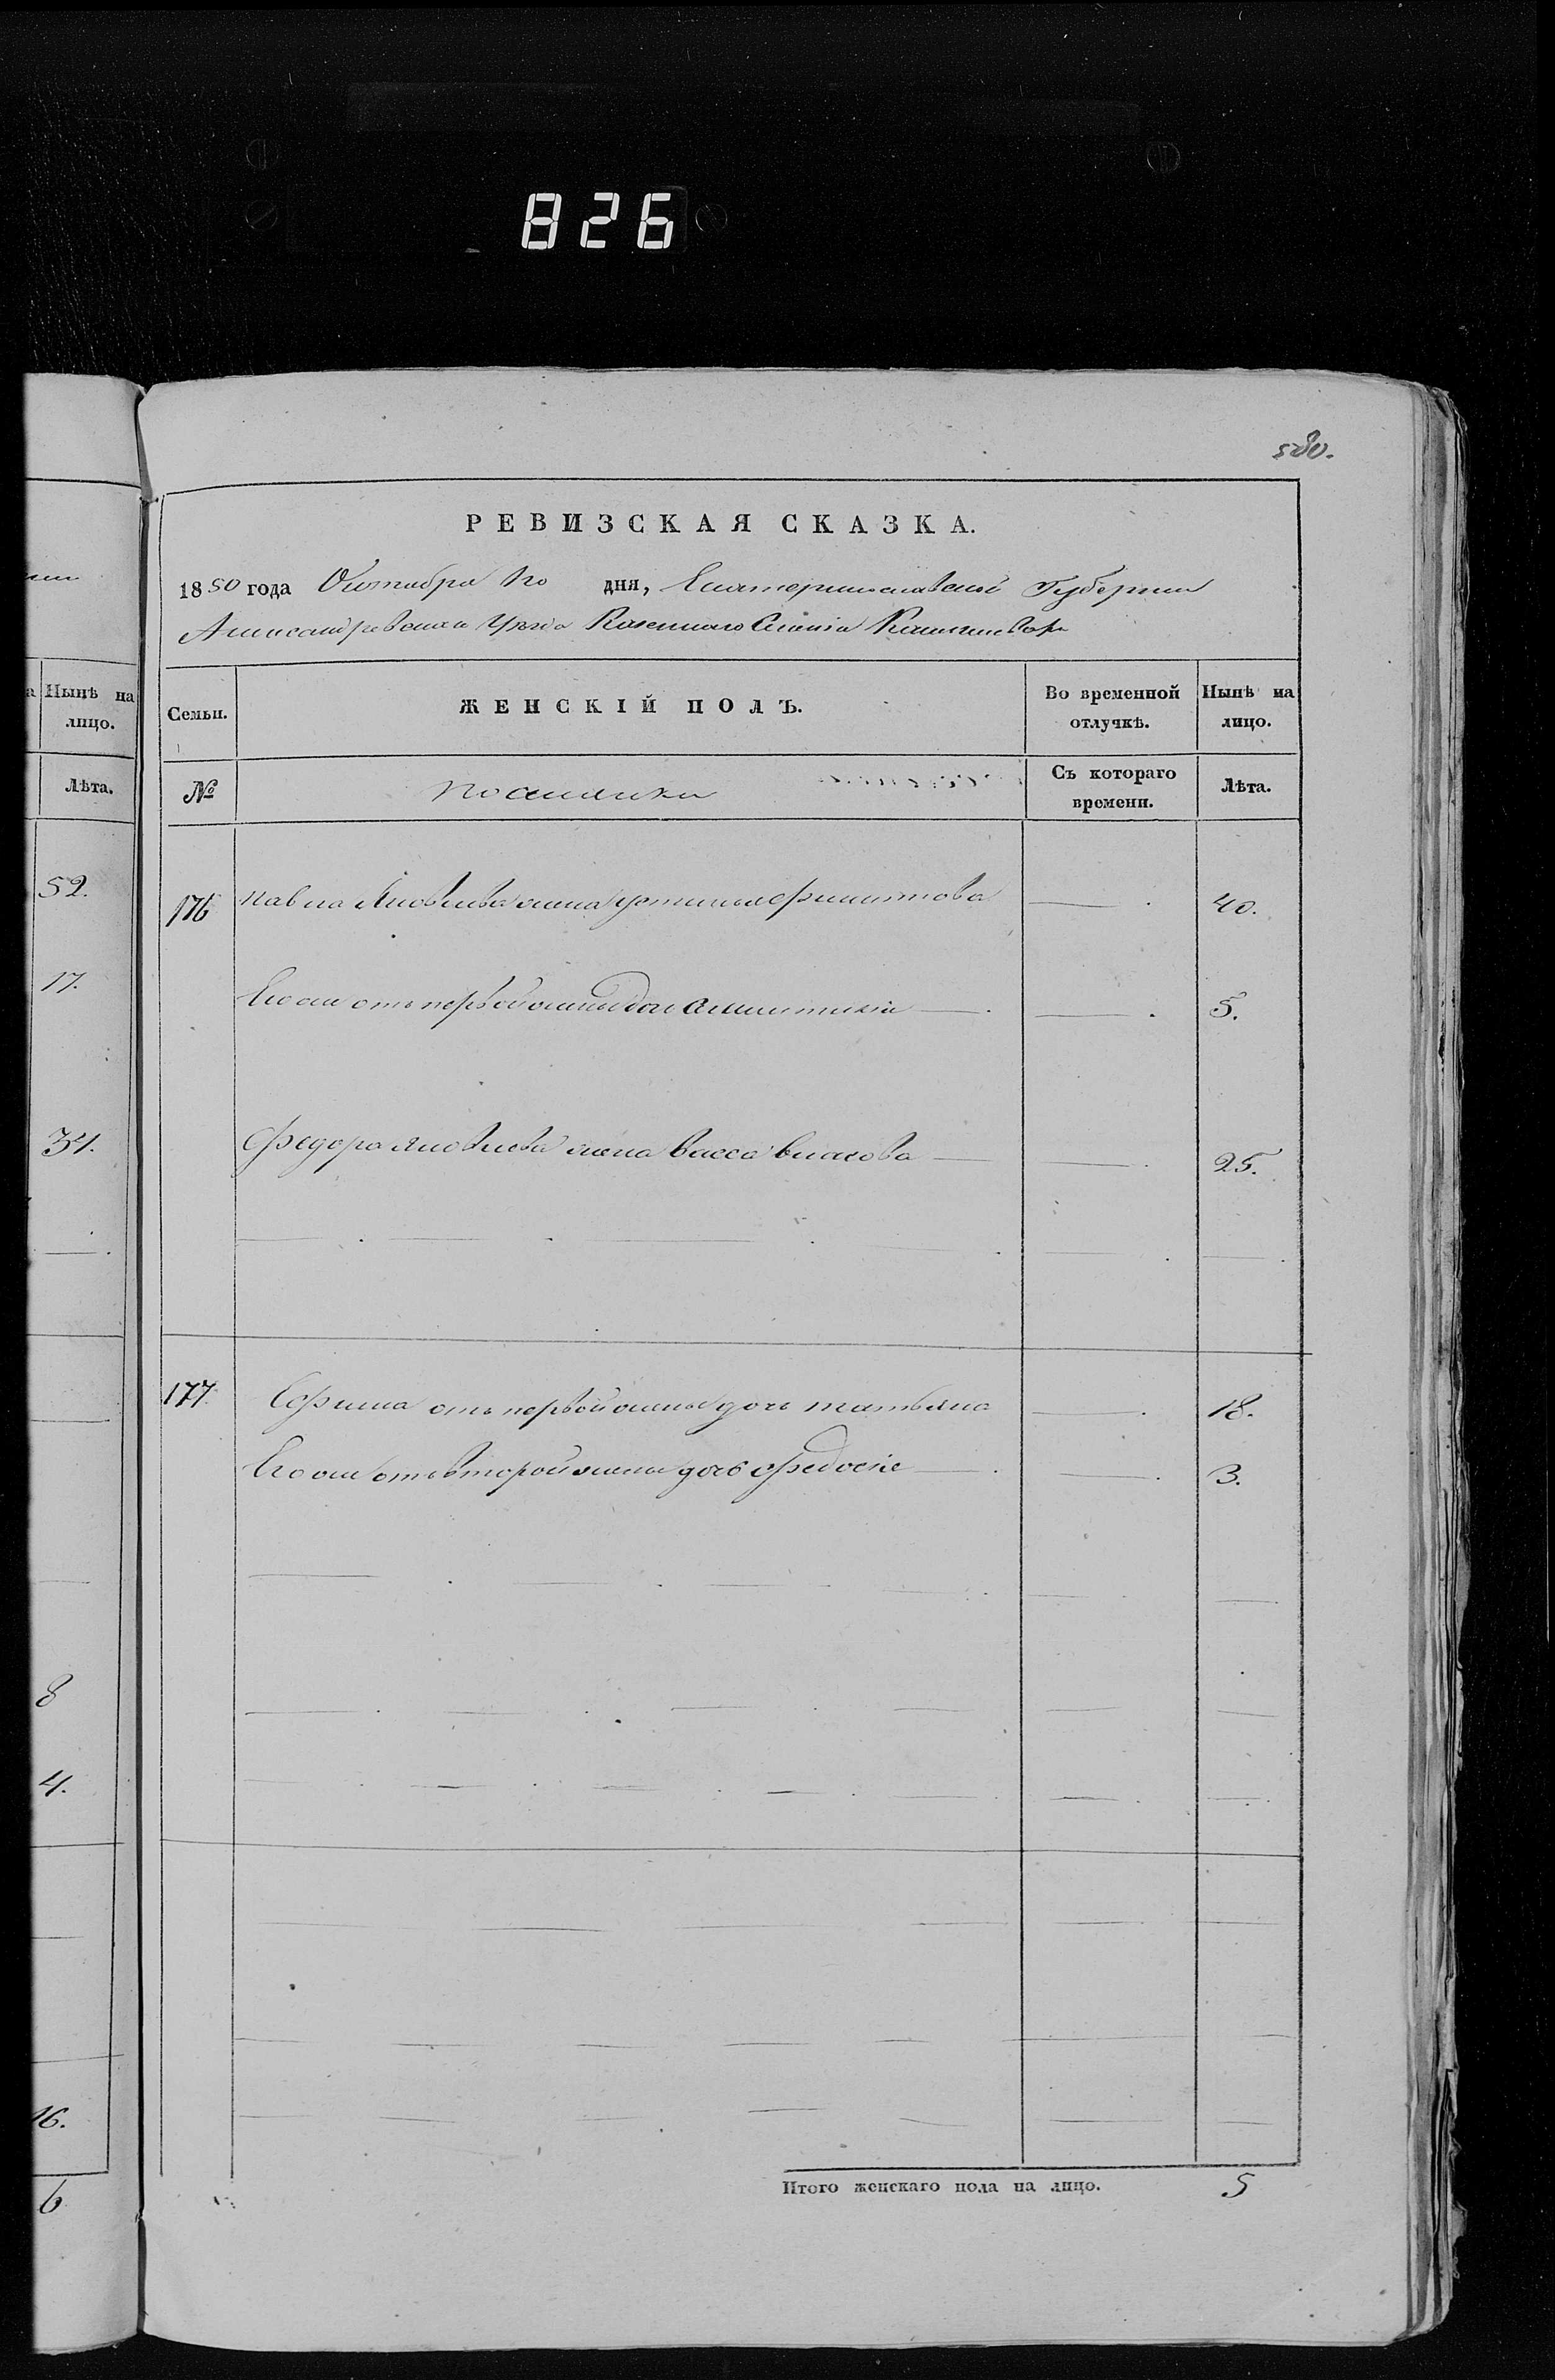 826
580.
РЕВИЗСКАЯ СКАЗКА.
1850 года Октября дня, Екатеринославской Губернии
Александровскаго Уезда Казеннаго Селения
Семьи. ЖЕНСКІЙ ПОЛЪ. Во временной отлучкѣ. Нынѣ на лицо.
№ Съ котораго времени. Лѣта.
176 Павла Яковлева жена Устинья Филиптова 40.
Его же отъ первой жены дочь 5.
Федора Яковлева жена Васса Власова 25.
177 Ефима отъ первой жены дочь Татьяна 18.
Его же отъ второй жены дочь Федосія 3.
Итого женскаго пола на лицо. 5
Нынѣ на
лицо.
Лѣта.
52.
17.
34.
8
4.
16.
6